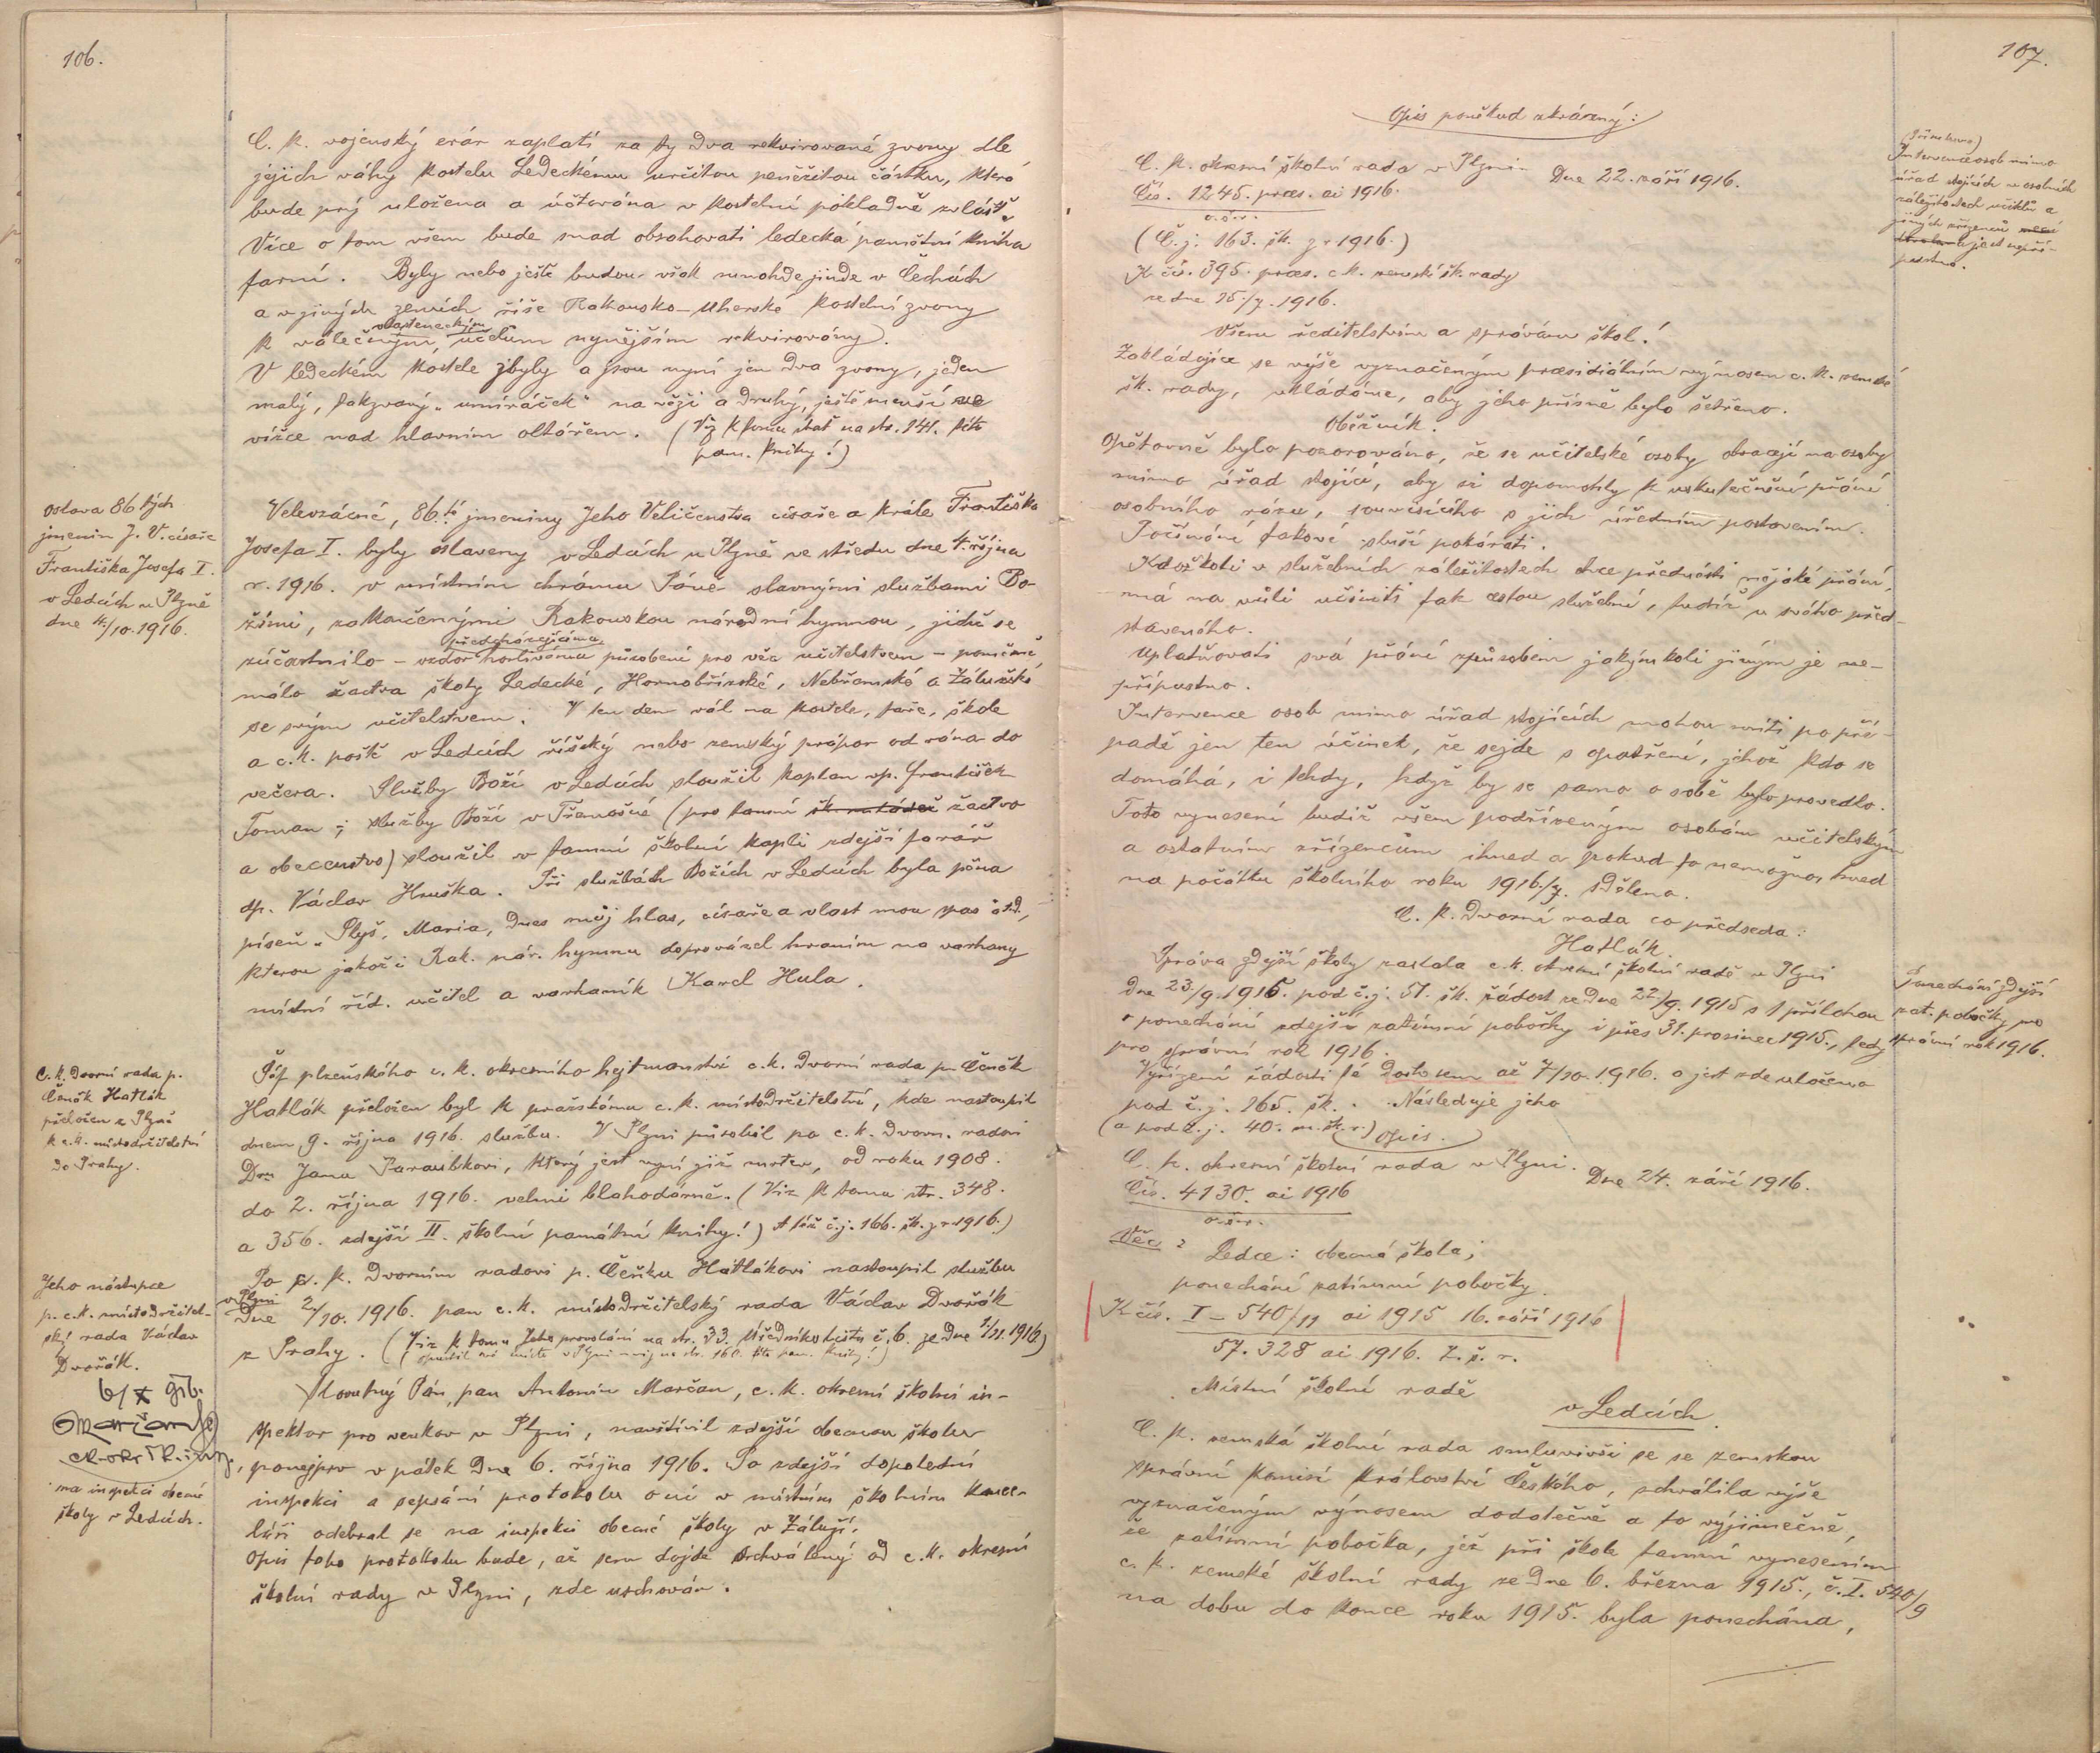 106.
C. k. vojenský erár zaplatí za ty dva rekvirované zvony dle
jejich váhy kostelu Ledeckému určitou peněžitou částku, která
bude prý uložena a účtována v kostelní pokladně zvláště.
Více o tom všem bude snad obsahovati ledecká pamětní kniha
farní. Byly nebo ještě budou však mnohde jinde v Čechách
a v jiných zemích říše Rakousko-Uherské kostelní zvony
k válečným vlasteneckým účelům nynějším rekvirovány.
V ledeckém kostele zbyly a jsou nyní jen dva zvony, jeden
malý, takzvaný „umíráček" na věži a druhý, ještě menší ve
vížce nad hlavním oltářem. (Viz k tomu stať na str. 141. této
pam. knihy!)
Oslava 86 tých
jmenin J. V. císaře
Františka Josefa I.
v Ledcích u Plzně
dne 4./10. 1916.
Velevzácné, 86té jmeniny Jeho Veličenstva císaře a krále Františka
Josefa I. byly oslaveny v Ledcích u Plzně ve středu dne 4. října
r. 1916. v místním chrámu Páně slavnými službami Bo-
žími, zakončenými Rakouskou národní hymnou, jichž se
zúčastnilo – vzdor předcházejícímu horlivému působení pro věc učitelstvem – poměrně
málo žactva školy Ledecké, Hornobřízské, Nebřemské a Zálužské
se svým učitelstvem. V ten den vál na kostele, faře, škole
a c. k. poště v Ledcích říšský nebo zemský prápor od rána do
večera. Služby Boží v Ledcích sloužil kaplan vp. František
Toman; služby Boží v Třemošné (pro tamní šk. mládež žactvo
a obecenstvo) sloužil v tamní školní kapli zdejší farář
dp. Václav Hruška. Při službách Božích v Ledcích byla pěna
píseň „Slyš, Maria, dnes můj hlas, císaře a vlast mou spas" atd.,
kterou jakož i Rak. nár. hymnu doprovázel hraním na varhany
místní říd. učitel a varhaník Karel Hula.
C. k. dvorní rada p.
Čeněk Hatlák
přeložen z Plzně
k c. k. místodržitelství
do Prahy.
Šéf plzeňského c. k. okresního hejtmanství c. k. dvorní rada pan Čeněk
Hatlák přeložen byl k pražskému c. k. místodržitelství, kde nastoupil
dnem 9. října 1916. službu. V Plzni působil po c. k. dvorn. radovi
Dru Janu Zaraubkovi, který jest nyní již mrtev, od roku 1908.
do 2. října 1916. velmi blahodárně. (Viz k tomu str. 348.
a 356. zdejší II. školní památní knihy!) A též č. j. 166. šk. z r. 1916.)
Jeho nástupce
p. c. k. místodržitel-
ský rada Václav
Dvořák.
Po c. k. dvorním radovi p. Čeňku Hatlákovi nastoupil službu
v Plzni dne 2./10. 1916. pan c. k. místodržitelský rada Václav Dvořák
z Prahy. (Viz k tomu Jeho provolání na str. 33. Úředního listu č. 6. ze dne 1./11. 1916)
(opustil své místo v Plzni viz na str. 160. této pam. knihy!)
6/X 916.
Marčan
c. k. okr. šk. insp.
na inspekci obecné
školy v Ledcích.
Slovutný Pán, pan Antonín Marčan, c. k. okresní školní in-
spektor pro venkov v Plzni, navštívil zdejší obecnou školu
ponejprv v pátek dne 6. října 1916. Po zdejší dopolední
inspekci a sepsání protokolu o ní v místním školním kance-
láři odebral se na inspekci obecné školy v Záluží.
Opis toho protokolu bude, až sem dojde schválený od c. k. okresní
školní rady v Plzni, zde uschován.
107.
Opis poněkud zkrácený:
C. k. okresní školní rada v Plzni
Dne 22. září 1916.
Čís. 1245. praes. ai 1916.
o. š. r.
(Č. j. 163. šk. z r 1916.)
K čís. 395. praes. c. k. zemské šk. rady
ze dne 15./7. 1916.
Všem ředitelstvím a správám škol!
Zakládajíce se výše vyznačeným praesidiálním výnosem c. k. zemské
šk. rady, ukládáme, aby jeho přísně bylo šetřeno.
Oběžník.
Intervence osob mimo
úřad stojících v osobních
záležitostech učitelů a
jiných zřízenců
jest nepří-
pustna.
Opětovně bylo pozorováno, že se učitelské osoby obracejí na osoby
mimo úřad stojící, aby si dopomohly k uskutečnění přání
osobního rázu, souvisícího s jich úředním postavením.
Počínání takové sluší pokárati.
Kdožkoli v služebních záležitostech chce přednésti nějaké přání,
má na vůli učiniti tak cestou služební, tudíž u svého před-
staveného.
Uplatňovati svá přání způsobem jakýmkoli jiným je ne-
přípustno.
Intervence osob mimo úřad stojících mohou míti po pří-
padě jen ten účinek, že sejde s opatření, jehož kdo se
domáhá, i tehdy, když by se samo o sobě bylo provedlo.
Toto vynesení budiž všem podřízeným osobám učitelským
a ostatním zřízencům ihned a pokud to nemožno, hned
na počátku školního roku 1916/7. sděleno.
C. k. dvorní rada co předseda:
Hatlák.
Ponechání zdejší
zat. pobočky pro
správní rok 1916.
Správa zdejší školy zaslala c. k. okresní školní radě v Plzni
dne 23./9. 1915. pod č. j. 51. šk. žádost ze dne 22./9. 1915 s 1 přílohou
o ponechání zdejší zatímní pobočky i přes 31. prosinec 1915., tedy
pro správní rok 1916.
Vyřízení žádosti té došlo sem až 7/10. 1916. a jest zde uloženo
pod č. j. 165. šk. Následuje jeho
(a pod č. j. 40. m. šk. r.) opis.
C. k. okresní školní rada v Plzni.
Dne 24. září 1916.
Čís. 4130. ai 1916
o. š. r.
Věc:
Ledce: obecná škola;
ponechání zatímní pobočky.
K čís. I – 540/11 ai 1915 16. září 1916
57.328 ai 1916. Z. š. r.
Místní školní radě
v Ledcích.
C. k. zemská školní rada smluvivši se se zemskou
správní komisí království Českého, schválila výše
vyznačeným výnosem dodatečně a to výjimečně,
že zatímní pobočka, jež při škole tamní vynesením
c. k. zemské školní rady ze dne 6. března 1915., č. I. 540/9
na dobu do konce roku 1915. byla ponechána,